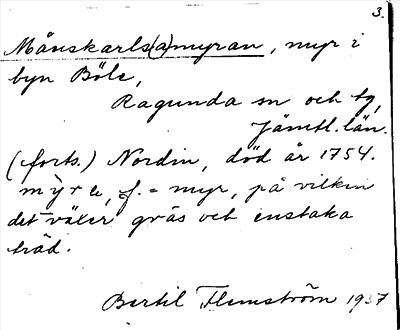 3.
Månskarls(a)myran, myr i
byn Böle,
Ragunda sn och tg,
Jämtl. län.
(forts.) Nordin, död år 1754.
mỳre, f. = myr, på vilken
det växer gräs och enstaka
träd.
Bertil Flemström 1937